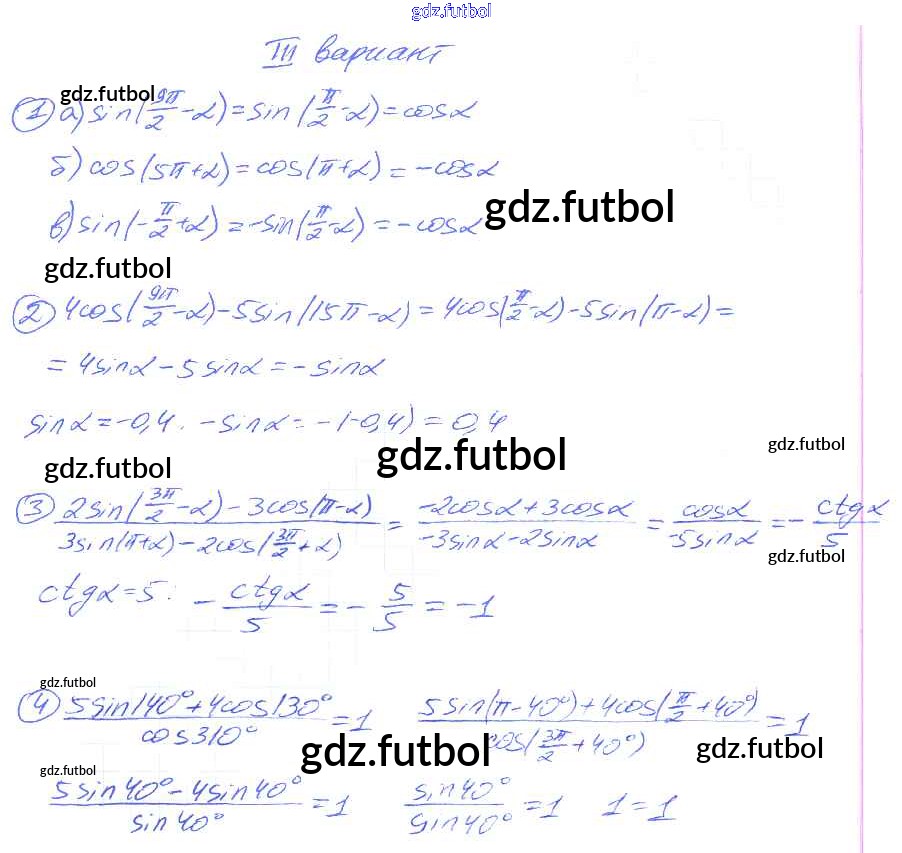 gdz.futbol
III вариант
① а) sin(9π/2 - α) = sin(π/2 - α) = cosα
gdz.futbol
б) cos(5π + α) = cos(π + α) = -cosα
gdz.futbol
в) sin(-π/2 + α) = -sin(π/2 - α) = -cosα
gdz.futbol
② 4cos(9π/2 - α) - 5sin(15π - α) = 4cos(π/2 - α) - 5sin(π - α) =
= 4sinα - 5sinα = -sinα
sinα = -0,4. -sinα = -(-0,4) = 0,4
gdz.futbol
gdz.futbol
gdz.futbol
③ (2sin(3π/2 - α) - 3cos(π - α))/(3sin(π + α) - 2cos(3π/2 + α)) = (-2cosα + 3cosα)/(-3sinα - 2sinα) = cosα/(-5sinα) = -ctgα/5
gdz.futbol
ctgα = 5: -ctgα/5 = -5/5 = -1
gdz.futbol
④ (5sin140° + 4cos130°)/cos310° = 1 (5sin(π - 40°) + 4cos(π/2 + 40°))/cos(3π/2 + 40°) = 1
gdz.futbol
gdz.futbol
gdz.futbol
(5sin40° - 4sin40°)/sin40° = 1 sin40°/sin40° = 1 1 = 1